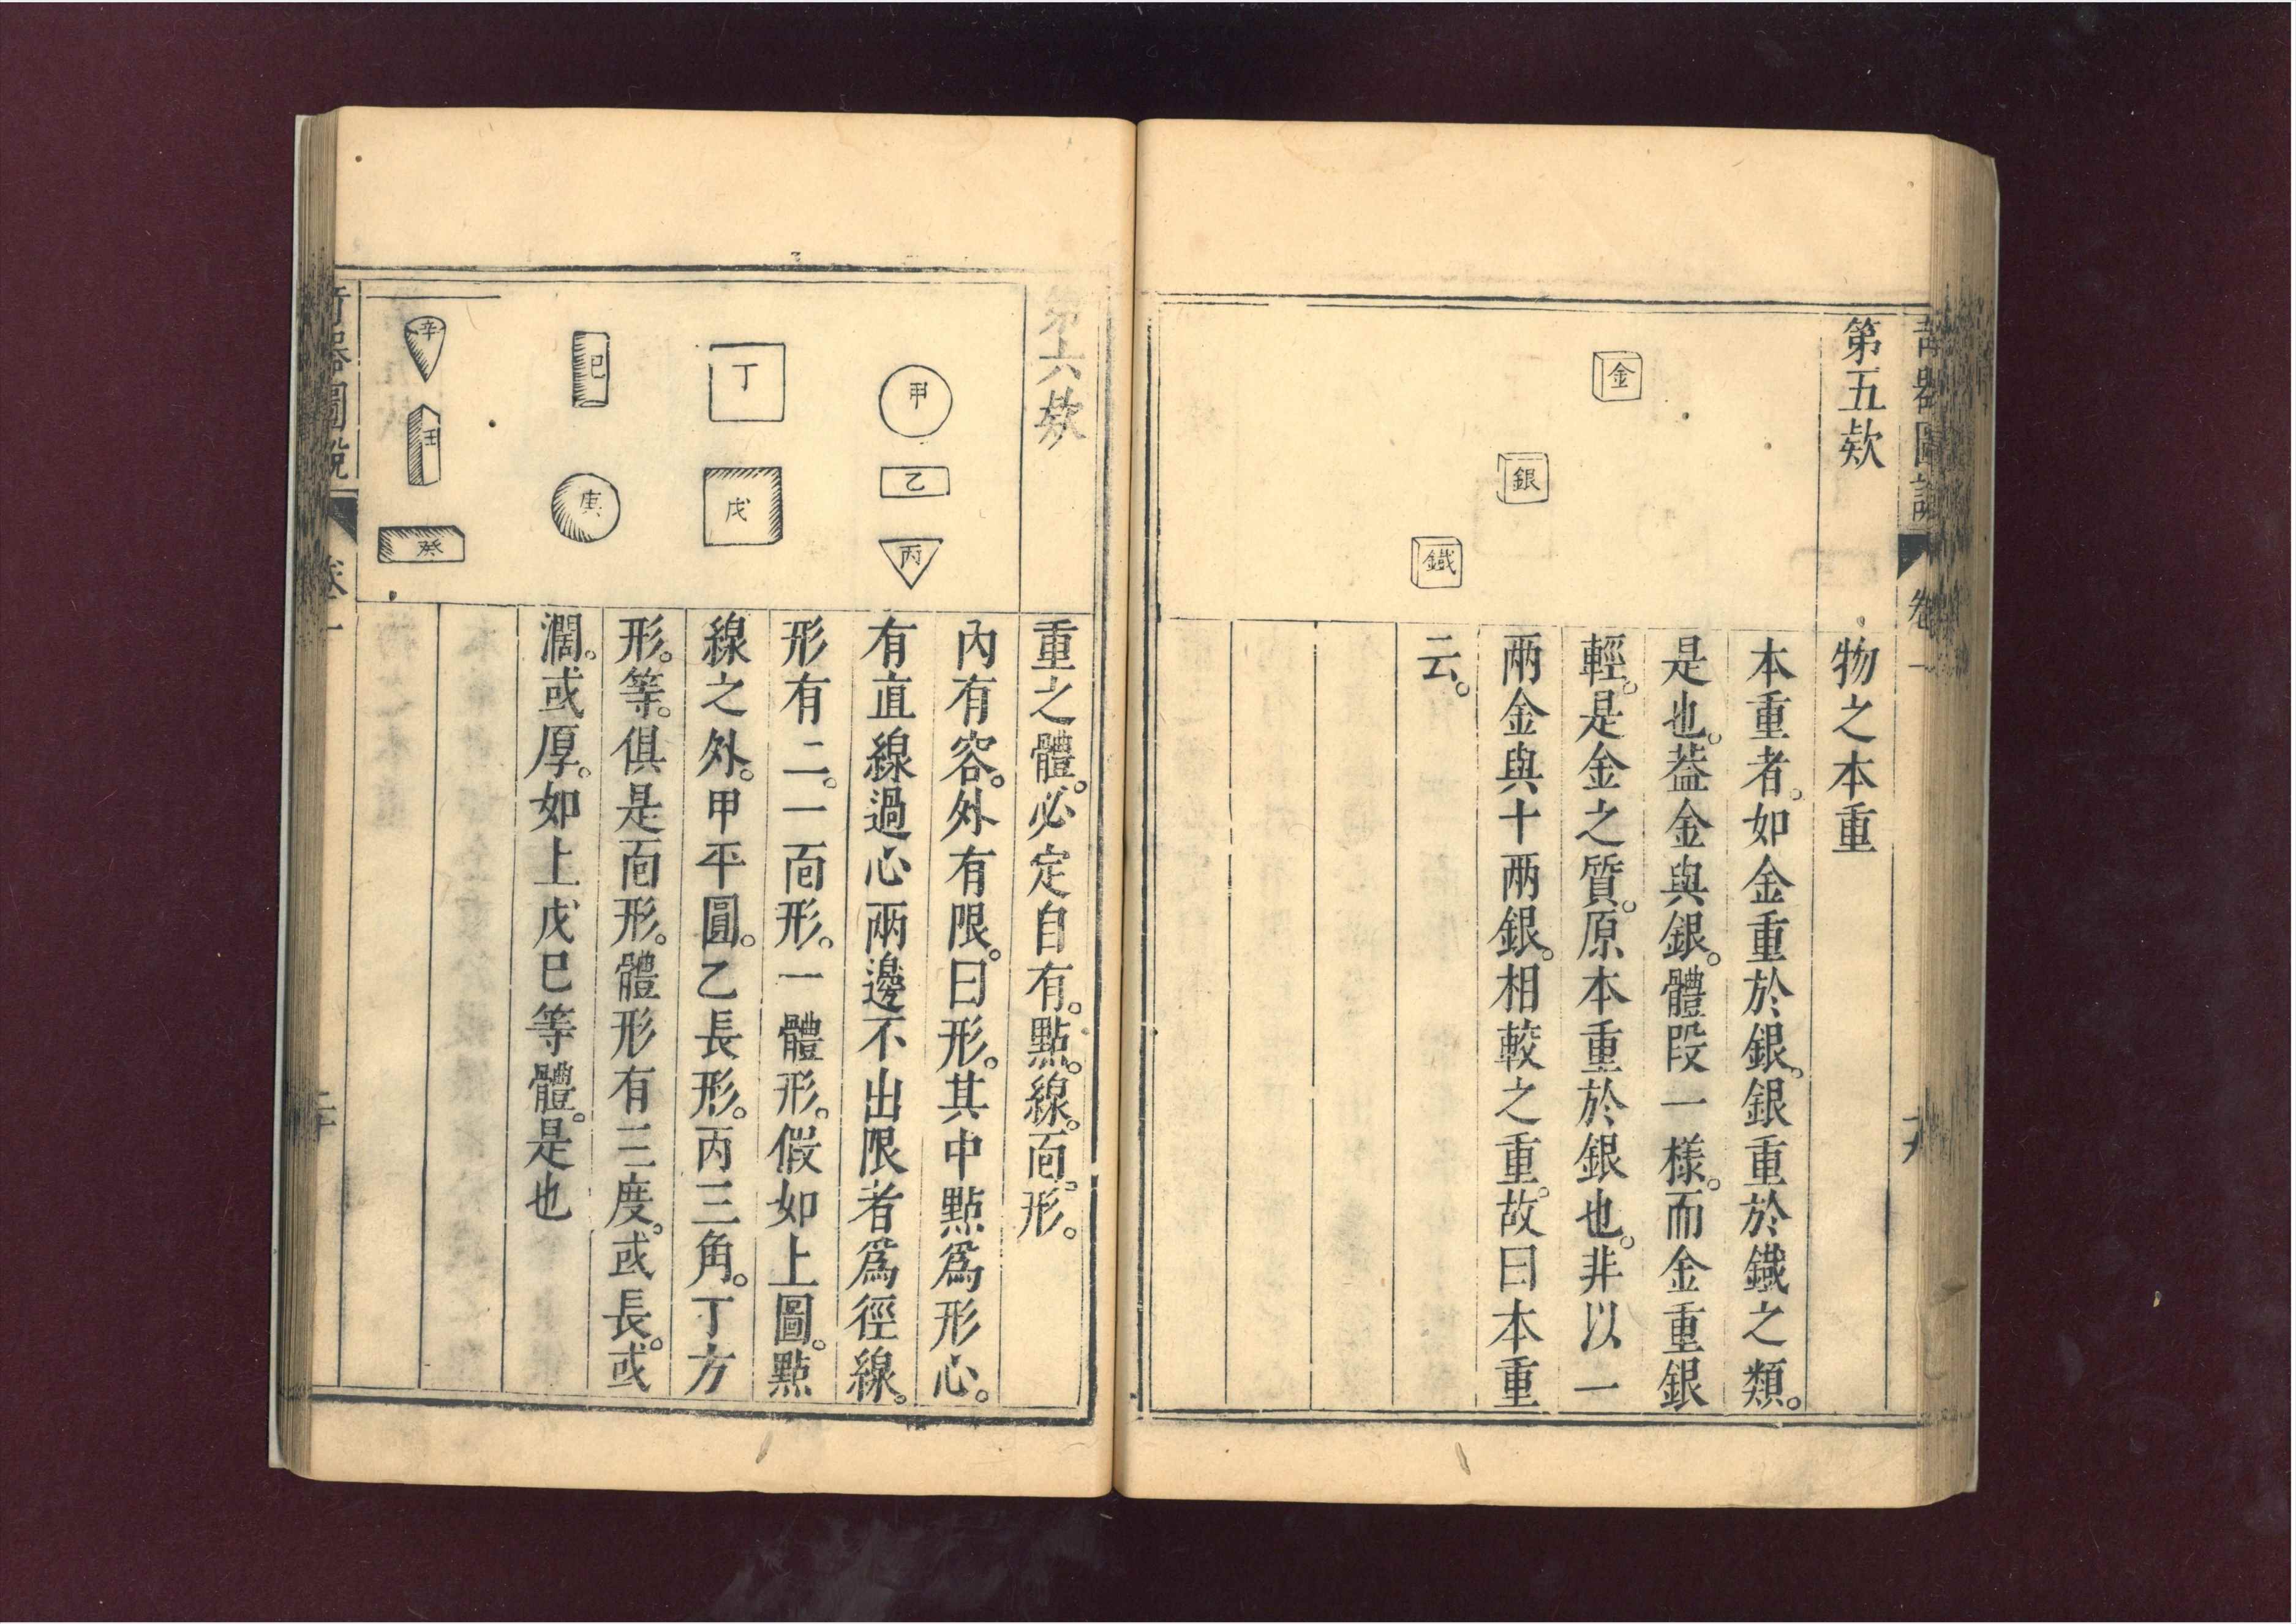 第五欵
金
銀
鐵
物之本重
本重者。如金重於銀。銀重於鐵之類。
是也。葢金與銀。體段一樣。而金重銀
輕。是金之質。原本重於銀也。非以一
兩金與十兩銀。相較之重。故曰本重
云。
第六欵
甲
乙
丙
丁
戊
巳
庚
辛
壬
癸
重之體。必定自有。點。線。面。形。
內有容。外有限。曰形。其中點爲形心。
有直線過心兩邊不出限者爲徑線。
形有二。一面形。一體形。假如上圖。點
線之外。甲平圓。乙長形。丙三角。丁方
形。等。俱是面形。體形有三度。或長。或
濶。或厚。如上戊巳等體。是也
器圖說
卷一